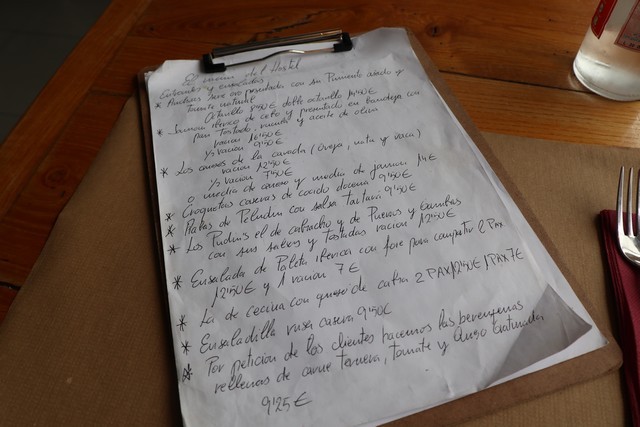 El menu del Hostal
Entrantes y ensaladas
* Anchoas Serie oro presentada con su Pimiento asado y
tomate natural
Octavillo 8'50€ doble octavillo 14'50€
* Jamon iberico de cebo y presentado en bandeja con
pan tostado, y aceite de oliva
racion 16'50€
1/2 racion 9'50€
* Los quesos de la cañada (oveja, mixto y vaca)
racion 12'50€
1/2 racion 7'50€
o media de queso y media de jamon 14€
* Croquetas caseras de cocido docena 9'50€
* Rabas de Peludin con salsa tartara 9'50€
* Los Pudin's el de cabracho y de Puerros y Gambas
con sus salsas y Tostadas racion 12'50€
* Ensalada de Paleta iberica con foie para compartir 2 Pax
12'50€ y 1 racion 7€
* La de cecina con queso de cabra 2 PAX/12'50€ 1PAX 7€
* Ensaladilla rusa casera 9'50€
* Por peticion de los clientes hacemos las berenjenas
rellenas de carne ternera, tomate y Queso Gratinada
9'25€